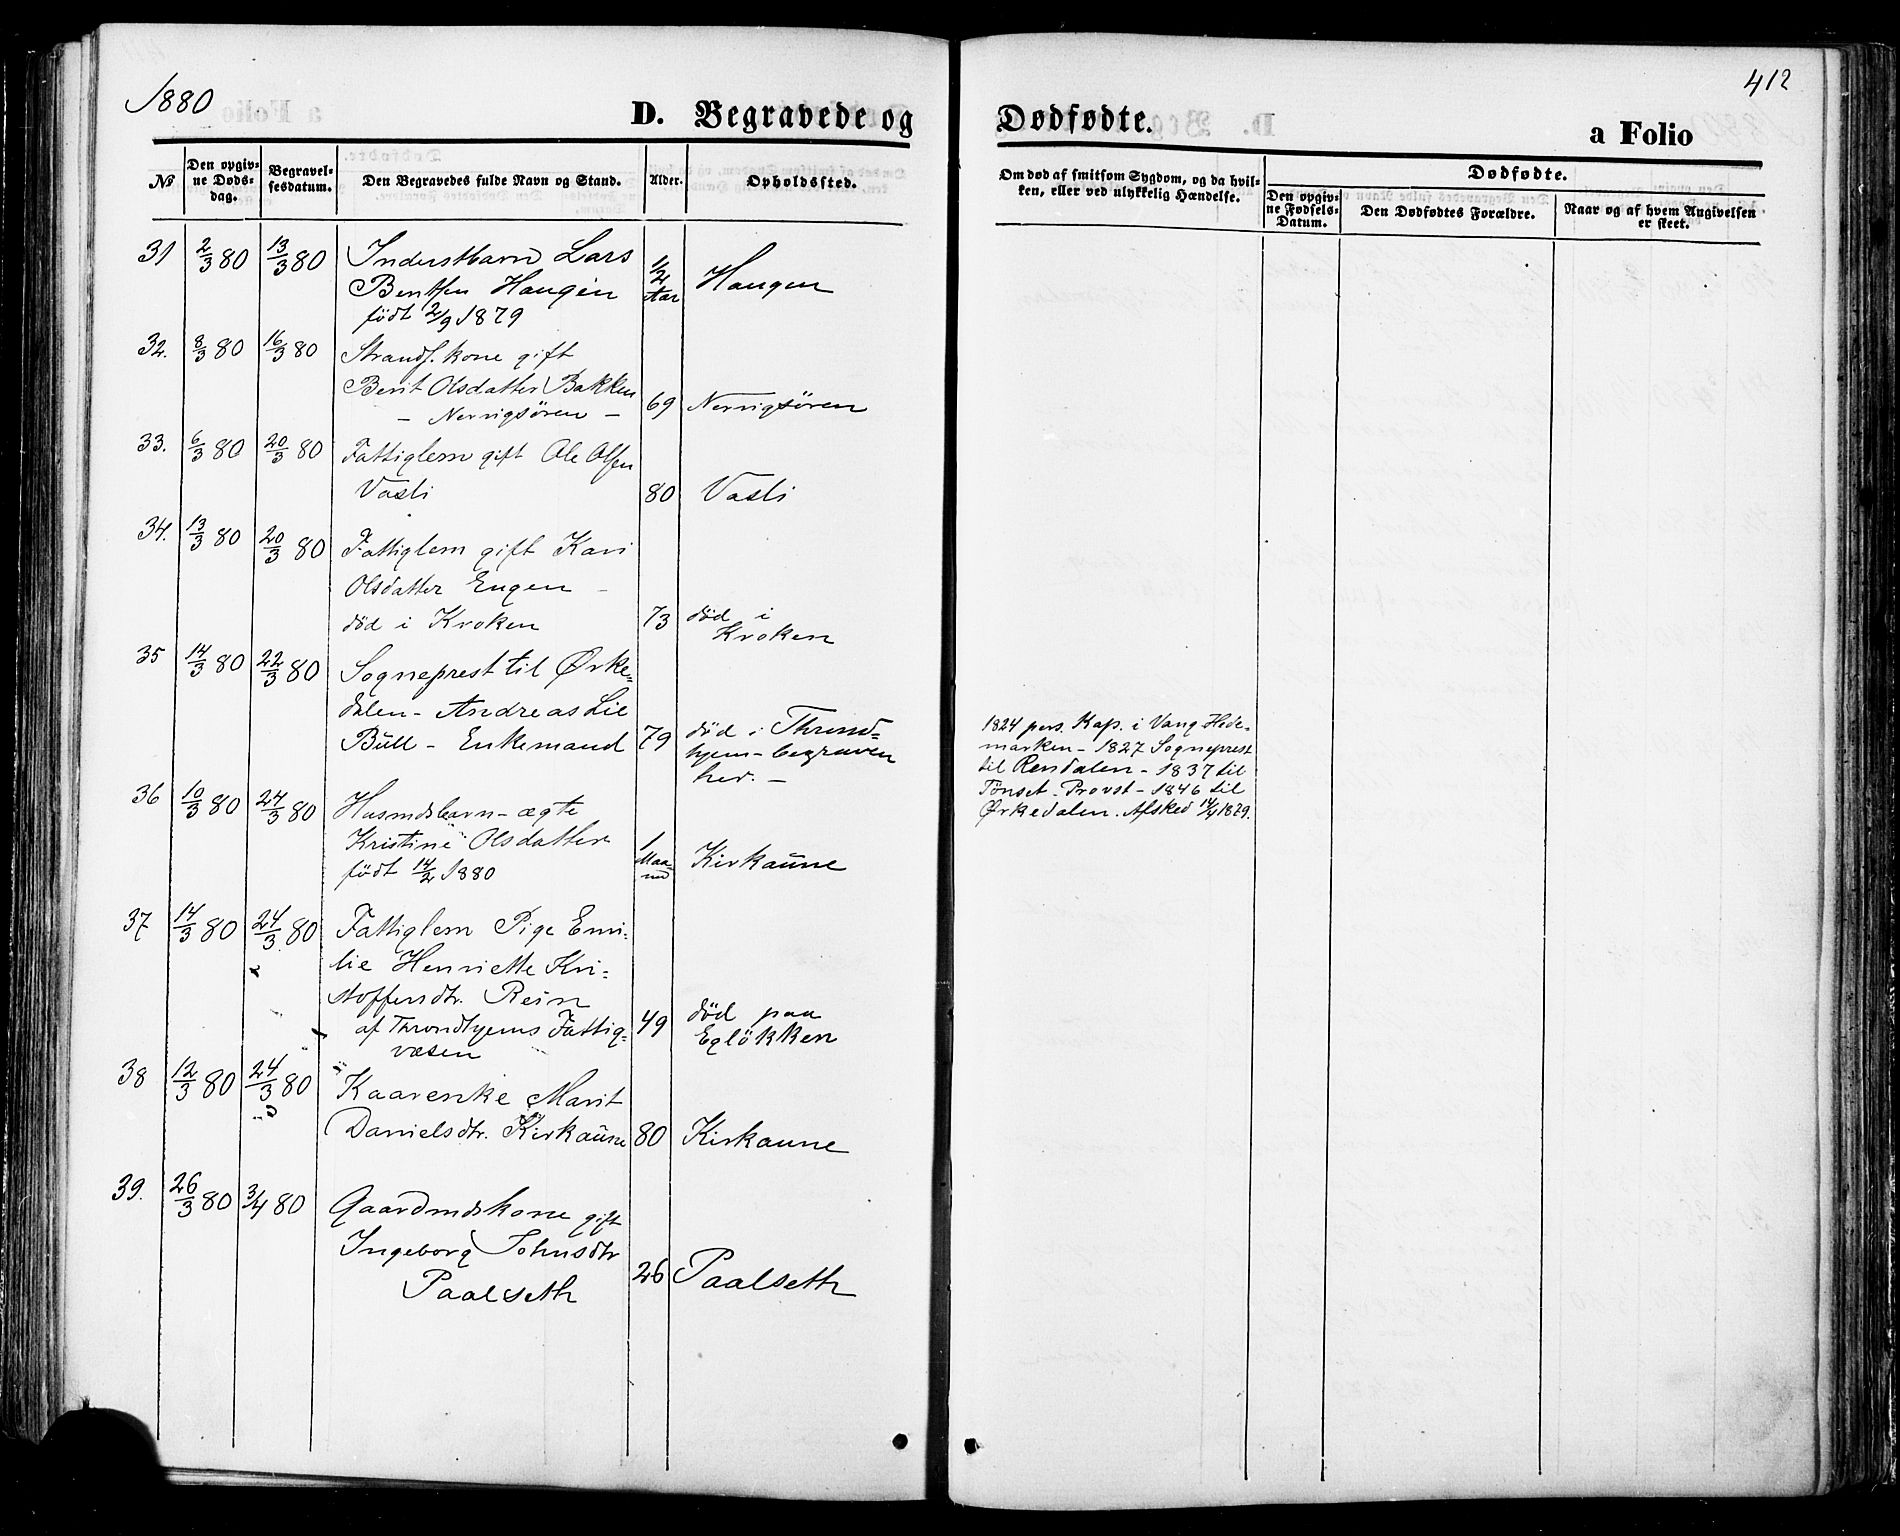 1880
D. Begravede og
No
Den opgiv-
ne Døds-
dag.
Begravel-
sesdatum.
Den Begravedes fulde Navn og Stand.
Alder.
Opholdssted.
31 2/3 80 13/3 80 Inderstbarn Lars
Bentsen Haugen
født 2/9 1879
1/2
Aar
Haugen
32. 8/3 80 16/3 80 Strands. kone gift
Berit Olsdatter Bakken
- Nervigsören -
69 Nervigsören
33. 6/3 80 20/3 80 Fattiglem gift Ole Olsen
Vasli
80 Vasli
34. 13/3 80 20/3 80 Fattiglem gift Kari
Olsdatter Engen -
död i Kroken
73 död i
Kroken
35 14/3 80 22/3 80 Sogneprest til Ørke=
dalen - Andreas Lie
Bull - Enkemand
79 död i Thrond=
hjem - begraven
her. -
36 10/3 80 24/3 80 Husmdsbarn - ægte
Kristine Olsdatter
født 14/2 1880
1
Maa-
ned
Kirkaune
37 14/3 80 24/3 80 Fattiglem Pige Emi-
lie Henriette Kri-
stoffersdtr. Rein
af Throndhjems Fattig=
væsen
49 död paa
Eglökken
38 12/3 80 24/3 80 Kaarenke Marit
Danielsdtr. Kirkaune
80 Kirkaune
39. 26/3 80 3/4 80 Gaardmdskone gift
Ingeborg Johnsdtr
Paalseth
26 Paalseth
412
Dødfødte.
a Folio
Om død af smitsom Sygdom, og da hvil-
ken, eller ved ulykkelig Hændelse.
Dødfødte.
Den opgiv-
ne Fødsels-
Datum.
Den Dødfødtes Forældre.
Naar og af hvem Angivelsen
er skeet.
1824 pers. Kap. i Vang Hede-
marken - 1827 Sogneprest
til Rendalen - 1837 til
Tönset. Provst - 1846 til
Ørkedalen. Afsked 14/4 1879.